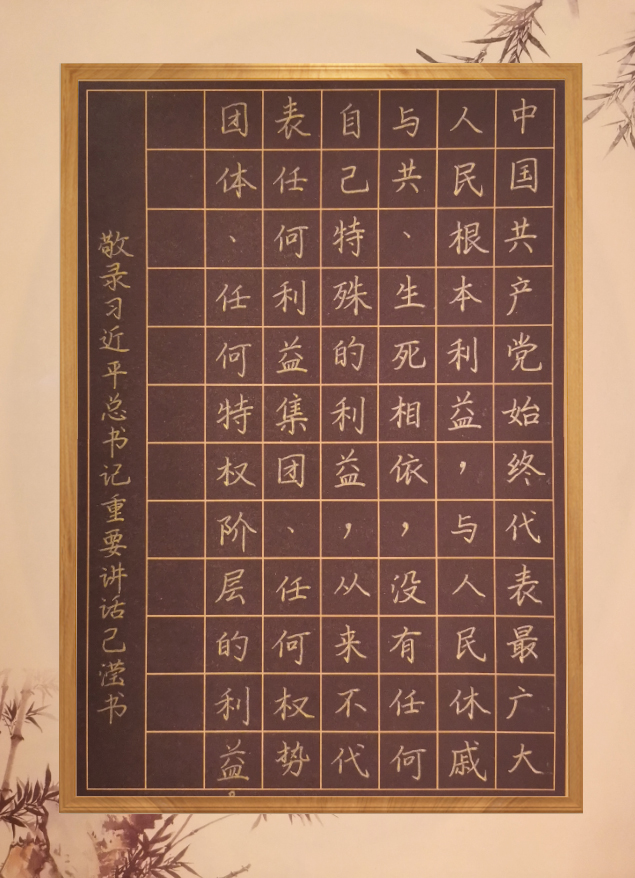 中国共产党始终代表最广大
人民根本利益，与人民休戚
与共、生死相依，没有任何
自己特殊的利益，从来不代
表任何利益集团、任何权势
团体、任何特权阶层的利益。
敬录习近平总书记重要讲话己滢书